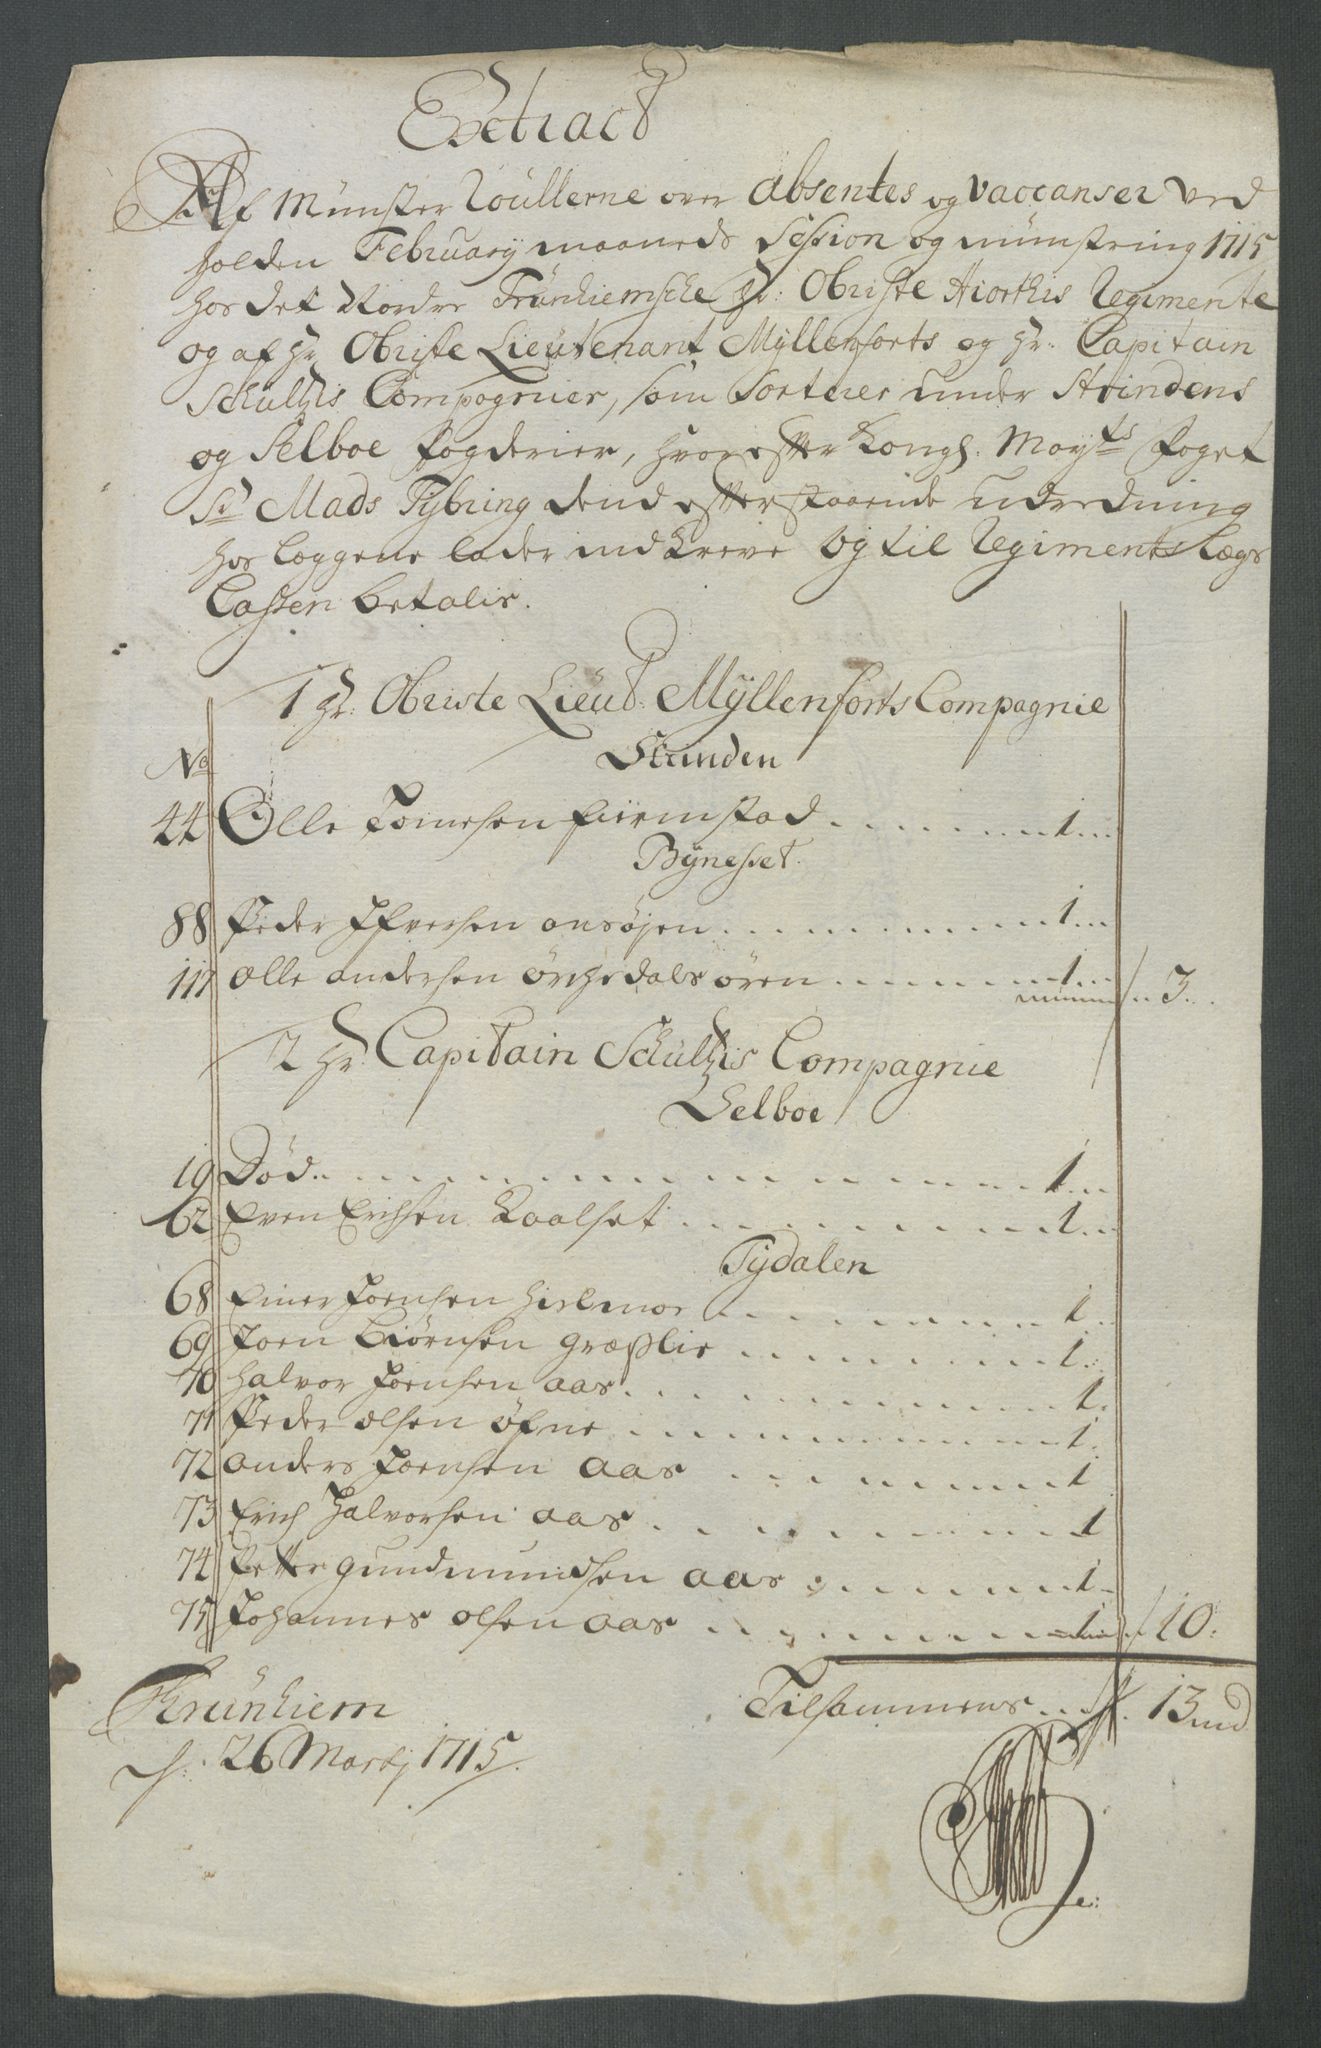 Extract
Af Münster Roullerne over Absentes og vaccanser ved
holden February maaneds Session og münstring 1715
hos det Nordre Trünhiemsche Hr: Obriste Hiorthis Regimente
og af Hr Obriste Lieutenant Myllenforts og Hr. Capitain
Schultzis Compagnier, som Sorterer under Strindens
og Selboe fogderier, hvorefter Kongl. Mayts foget
Sr Mads Tybring dend efterstaaende udredning
hos læggene lader indkreve og til Regiments Lægs
Cassen betalis.
1 Hr. Obriste Lieut. Myllenforts Compagnie
No
Strinden
44 Olle Joensen fiirmstad 1
Bynesset.
88 Peder Ifversen onsøjen 1
117 Olle andersen örchedals ören 1 / 3
2 Hr Capitain Schultzis Compagnie
Selboe
19 Död 1
62 Even Erichsen Kaalset 1
Tydalen
68 Einer Joensen hilmoe 1
69 Joen Biörnsen græslie 1
70 Halvor Joensen aas 1
71 Peder olsen öfne 1
72 anders Joensen aas 1
73 Erich Halvorsen aas 1
74 Petter gundmundsen aas 1
75 Johannes olsen aas 1 / 10
Tilsammens 13 md
Trünhiem
d. 26 Martj 1715.